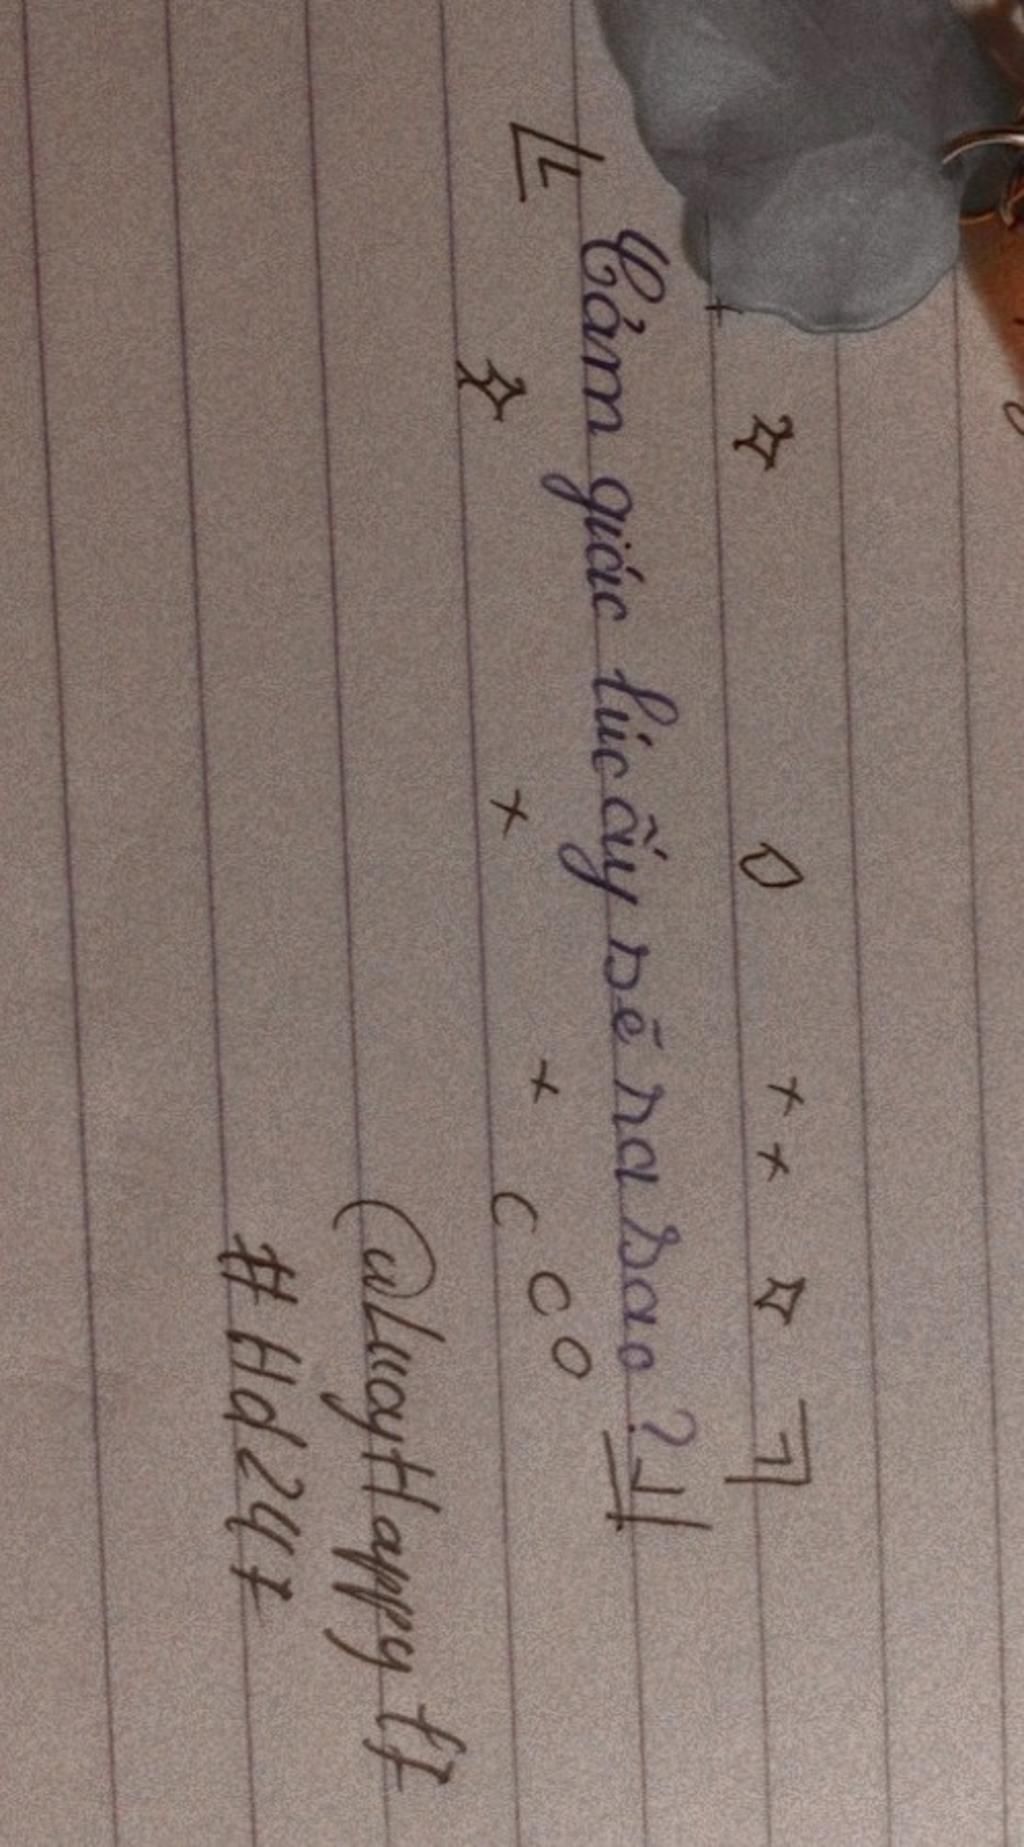 Cảm giác lúc ấy sẽ ra sao?
#Hd247